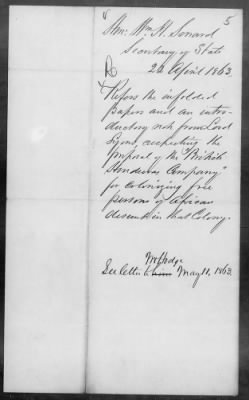 5
Hon: Wm. H. Seward
Secretary of State
22 April 1863.
Refers the infolded
papers and an intro-
ductory note from Lord
Lyons, respecting the
proposal of the "British
Honduras Company"
for colonizing free
persons of African
descent in that Colony.
See letter to May 11, 1863.